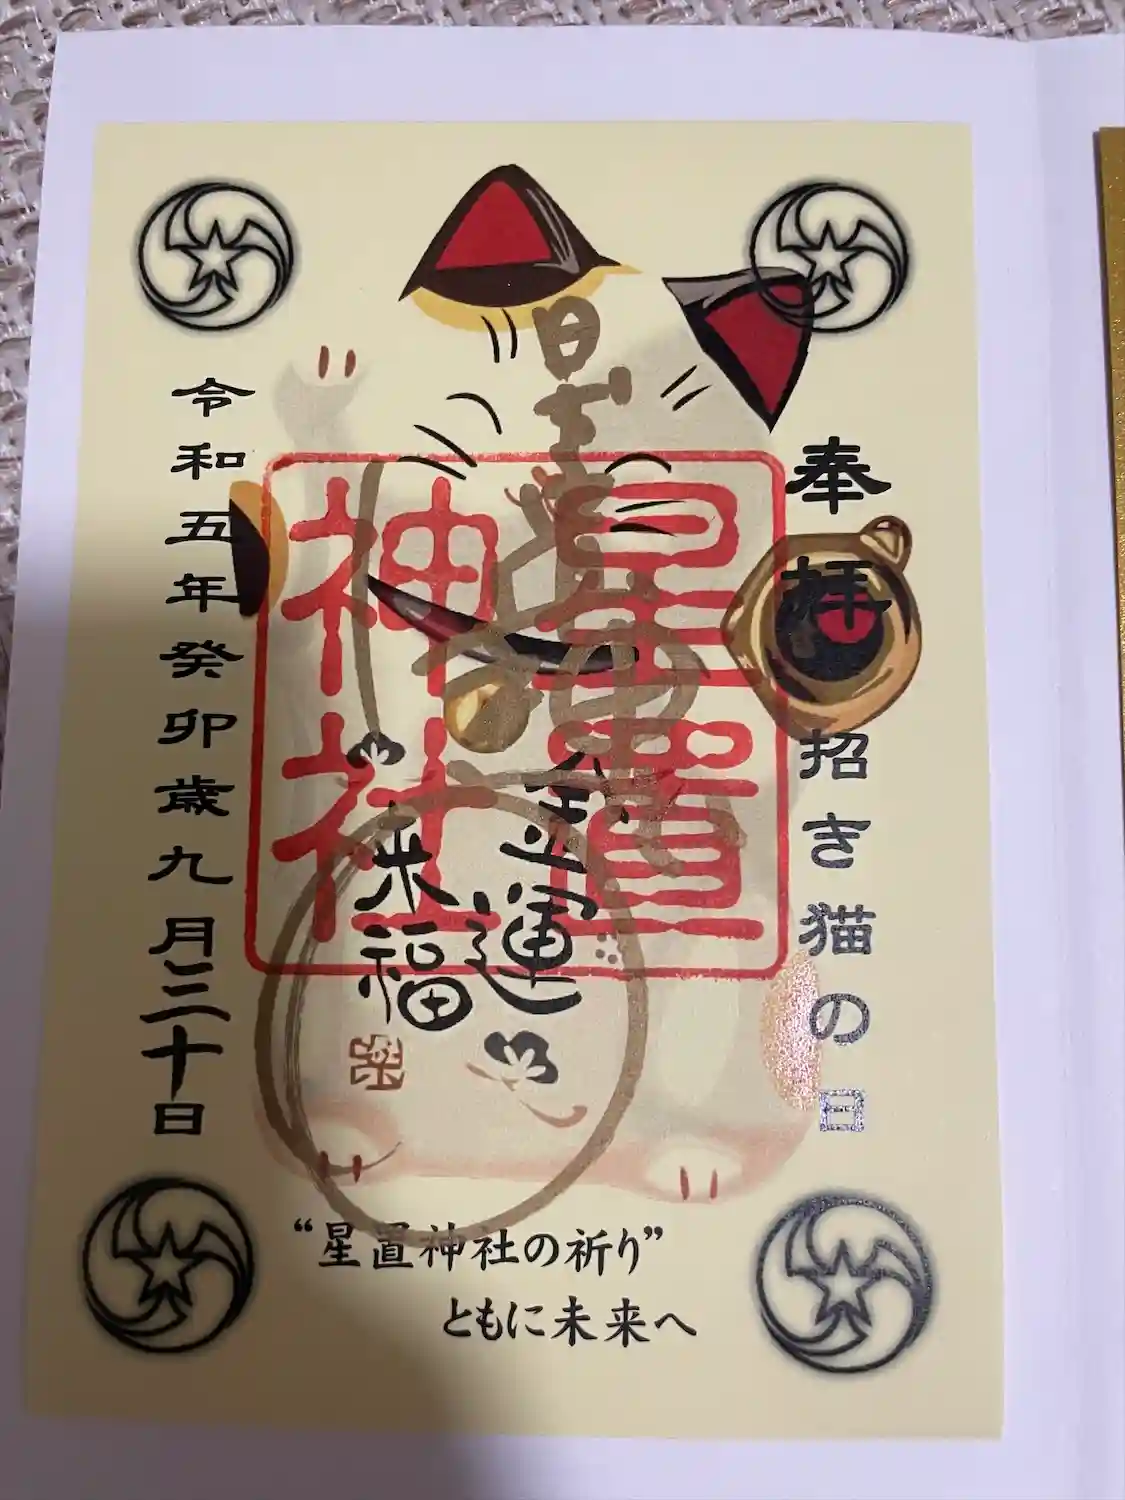 奉拝
招き猫の日
星置神社
星置神社
金運
来福
令和五年癸卯歳九月三十日
“星置神社の祈り”
ともに未来へ